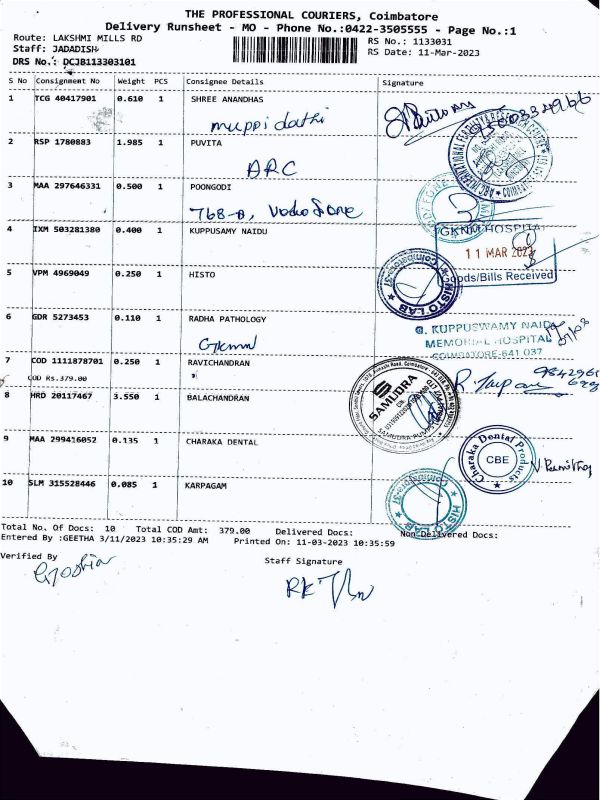 THE PROFESSIONAL COURIERS, Coimbatore
Delivery Runsheet - MO - Phone No.:0422-3505555 - Page No.:1
Route: LAKSHMI MILLS RD
RS No.: 1133031
Staff: JADADISH
RS Date: 11-Mar-2023
DRS No.: DCJB113303101
S No Consignment No Weight PCS Consignee Details Signature
1 TCG 40417901 0.610 1 SHREE ANANDHAS
muppidathi
2 RSP 1780883 1.985 1 PUVITA
ARC
3 MAA 297646331 0.500 1 POONGODI
768-B, Vodofone
4 IXM 503281380 0.400 1 KUPPUSAMY NAIDU
GKNM HOSPITAL
11 MAR 2023
Goods/Bills Received
5 VPM 4969049 0.250 1 HISTO
HISTO LAB
Coimbatore-37
6 GDR 5273453 0.110 1 RADHA PATHOLOGY
G. KUPPUSWAMY NAIDU
MEMORIAL HOSPITAL
COIMBATORE-641 037
Gknm
7 COD 1111878701 0.250 1 RAVICHANDRAN
COD RS.379.00
8 HRD 20117467 3.550 1 BALACHANDRAN
SAMUDRA
9 MAA 299416052 0.135 1 CHARAKA DENTAL
Charaka Dental Products
CBE
10 SLM 315528446 0.085 1 KARPAGAM
HISTO LAB
Coimbatore-37
Total No. Of Docs: 10 Total COD Amt: 379.00 Delivered Docs: Non-Delivered Docs:
Entered By :GEETHA 3/11/2023 10:35:29 AM Printed On: 11-03-2023 10:35:59
Verified By
Staff Signature